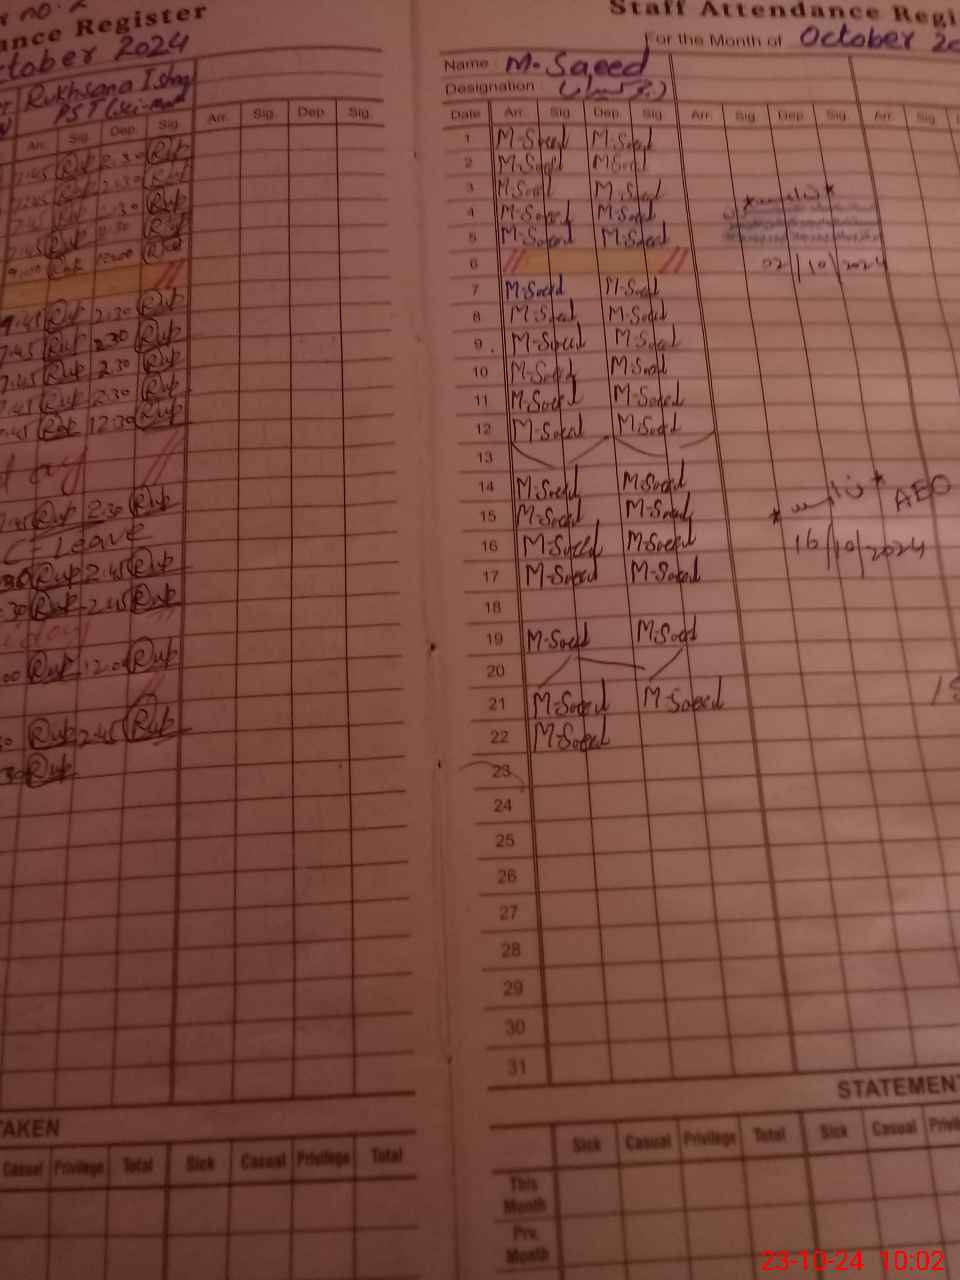 ance Register
October 2024
Rukhsana Ishaq
PST (Sci-mat
Arr. Sig. Dep. Sig. Arr. Sig. Dep. Sig.
7.45 Rup 2.30 Rup
7.45 Rup 2.30 Rup
7.45 Rup 2.30 Rup
7.45 Rup 2.30 Rup
Rup 12:00 Rup
7.45 Rup 2.30 Rup
7.45 Rup 2.30 Rup
7.45 Rup 2.30 Rup
7.45 Rup 2.30 Rup
7.45 Rup 12:30 Rup
7.45 Rup 2.30 Rup
C-Leave
Rup 2.45 Rup
30 Rup 2.45 Rup
00 Rup 12.00 Rup
Rup 2.45 Rup
30 Rup
TAKEN
Casual Privilege Total Sick Casual Privilege Total
Staff Attendance Regi
For the Month of October 20
Name : M. Saeed
Designation :
Date Arr. Sig. Dep. Sig. Arr. Sig. Dep. Sig. Arr. Sig.
1 M-Saeed M-Saeed
2 M-Saeed M-Saeed
3 M-Saeed M-Saeed
4 M-Saeed M-Saeed
5 M-Saeed M-Saeed
6
02/10/2024
7 M-Saeed M-Saeed
8 M-Saeed M-Saeed
9 M-Saeed M-Saeed
10 M-Saeed M-Saeed
11 M-Saeed M-Saeed
12 M-Saeed M-Saeed
13
14 M-Saeed M-Saeed
AEO
15 M-Saeed M-Saeed
16 M-Saeed M-Saeed
16/10/2024
17 M-Saeed M-Saeed
18
19 M-Saeed M-Saeed
20
21 M-Saeed M-Saeed
22 M-Saeed
23
24
25
26
27
28
29
30
31
STATEMENT
Sick Casual Privilege Total Sick Casual Privile
This Month
Prv. Month
23-10-24 10:02